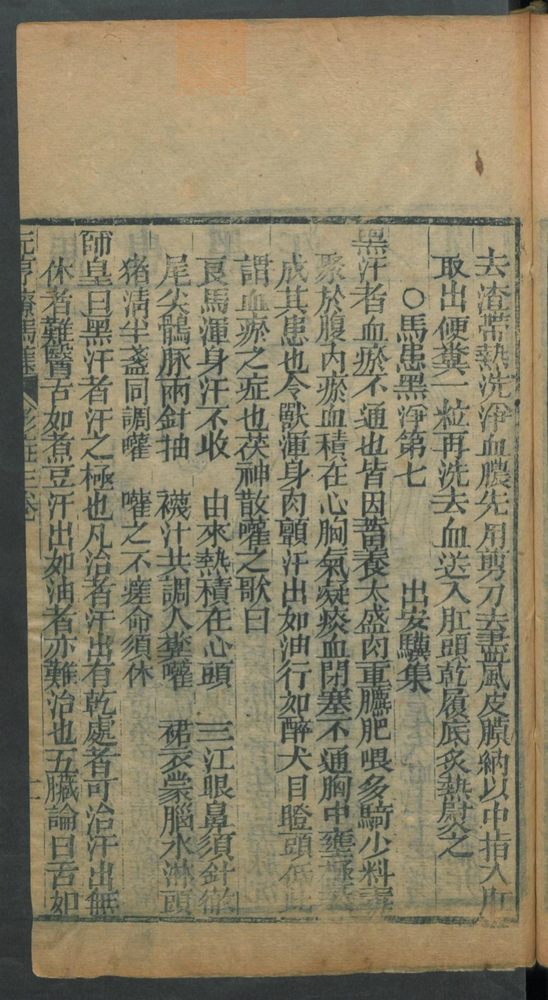 去渣帶熱洗淨血膿先用剪刀去盡風皮膜納以中指入肛
取出便糞一粒再洗去血送入肛頭乾履底炙熱熨之
○馬患黑汗第七　出安驥集
黑汗者血瘀不通也皆因蓄養太盛肉重膘肥喂多騎少料毒
聚於腹內瘀血積在心胸氣凝痰血閉塞不通胸中壅極
成其患也令獸渾身肉顫汗出如油行如醉犬目瞪頭低此
謂血瘀之症也茯神散嚾之歌曰
良馬渾身汗不收　由來熱積在心頭　三江眼鼻須針徹
尾尖鶻脉兩針抽　襪汁共調人糞嚾　裙衣蒙腦水淋頭
猪清半盞同調嚾　嚾之不瘥命須休
師皇曰黑汗者汗之極也凡治者汗出有乾處者可治汗出無
休者難醫舌如煮豆汗出如油者亦難治也五臟論曰舌如
元亨療馬集